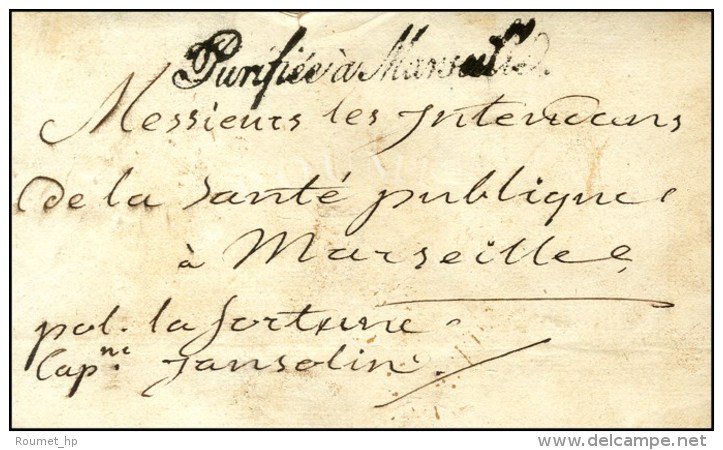 Purifiée à Marseille.
Messieurs les Intendans
de la Santé publique
à Marseille
pol. la fortune
Cap.ne Jansolin.
Roumet_hp
www.delcampe.net